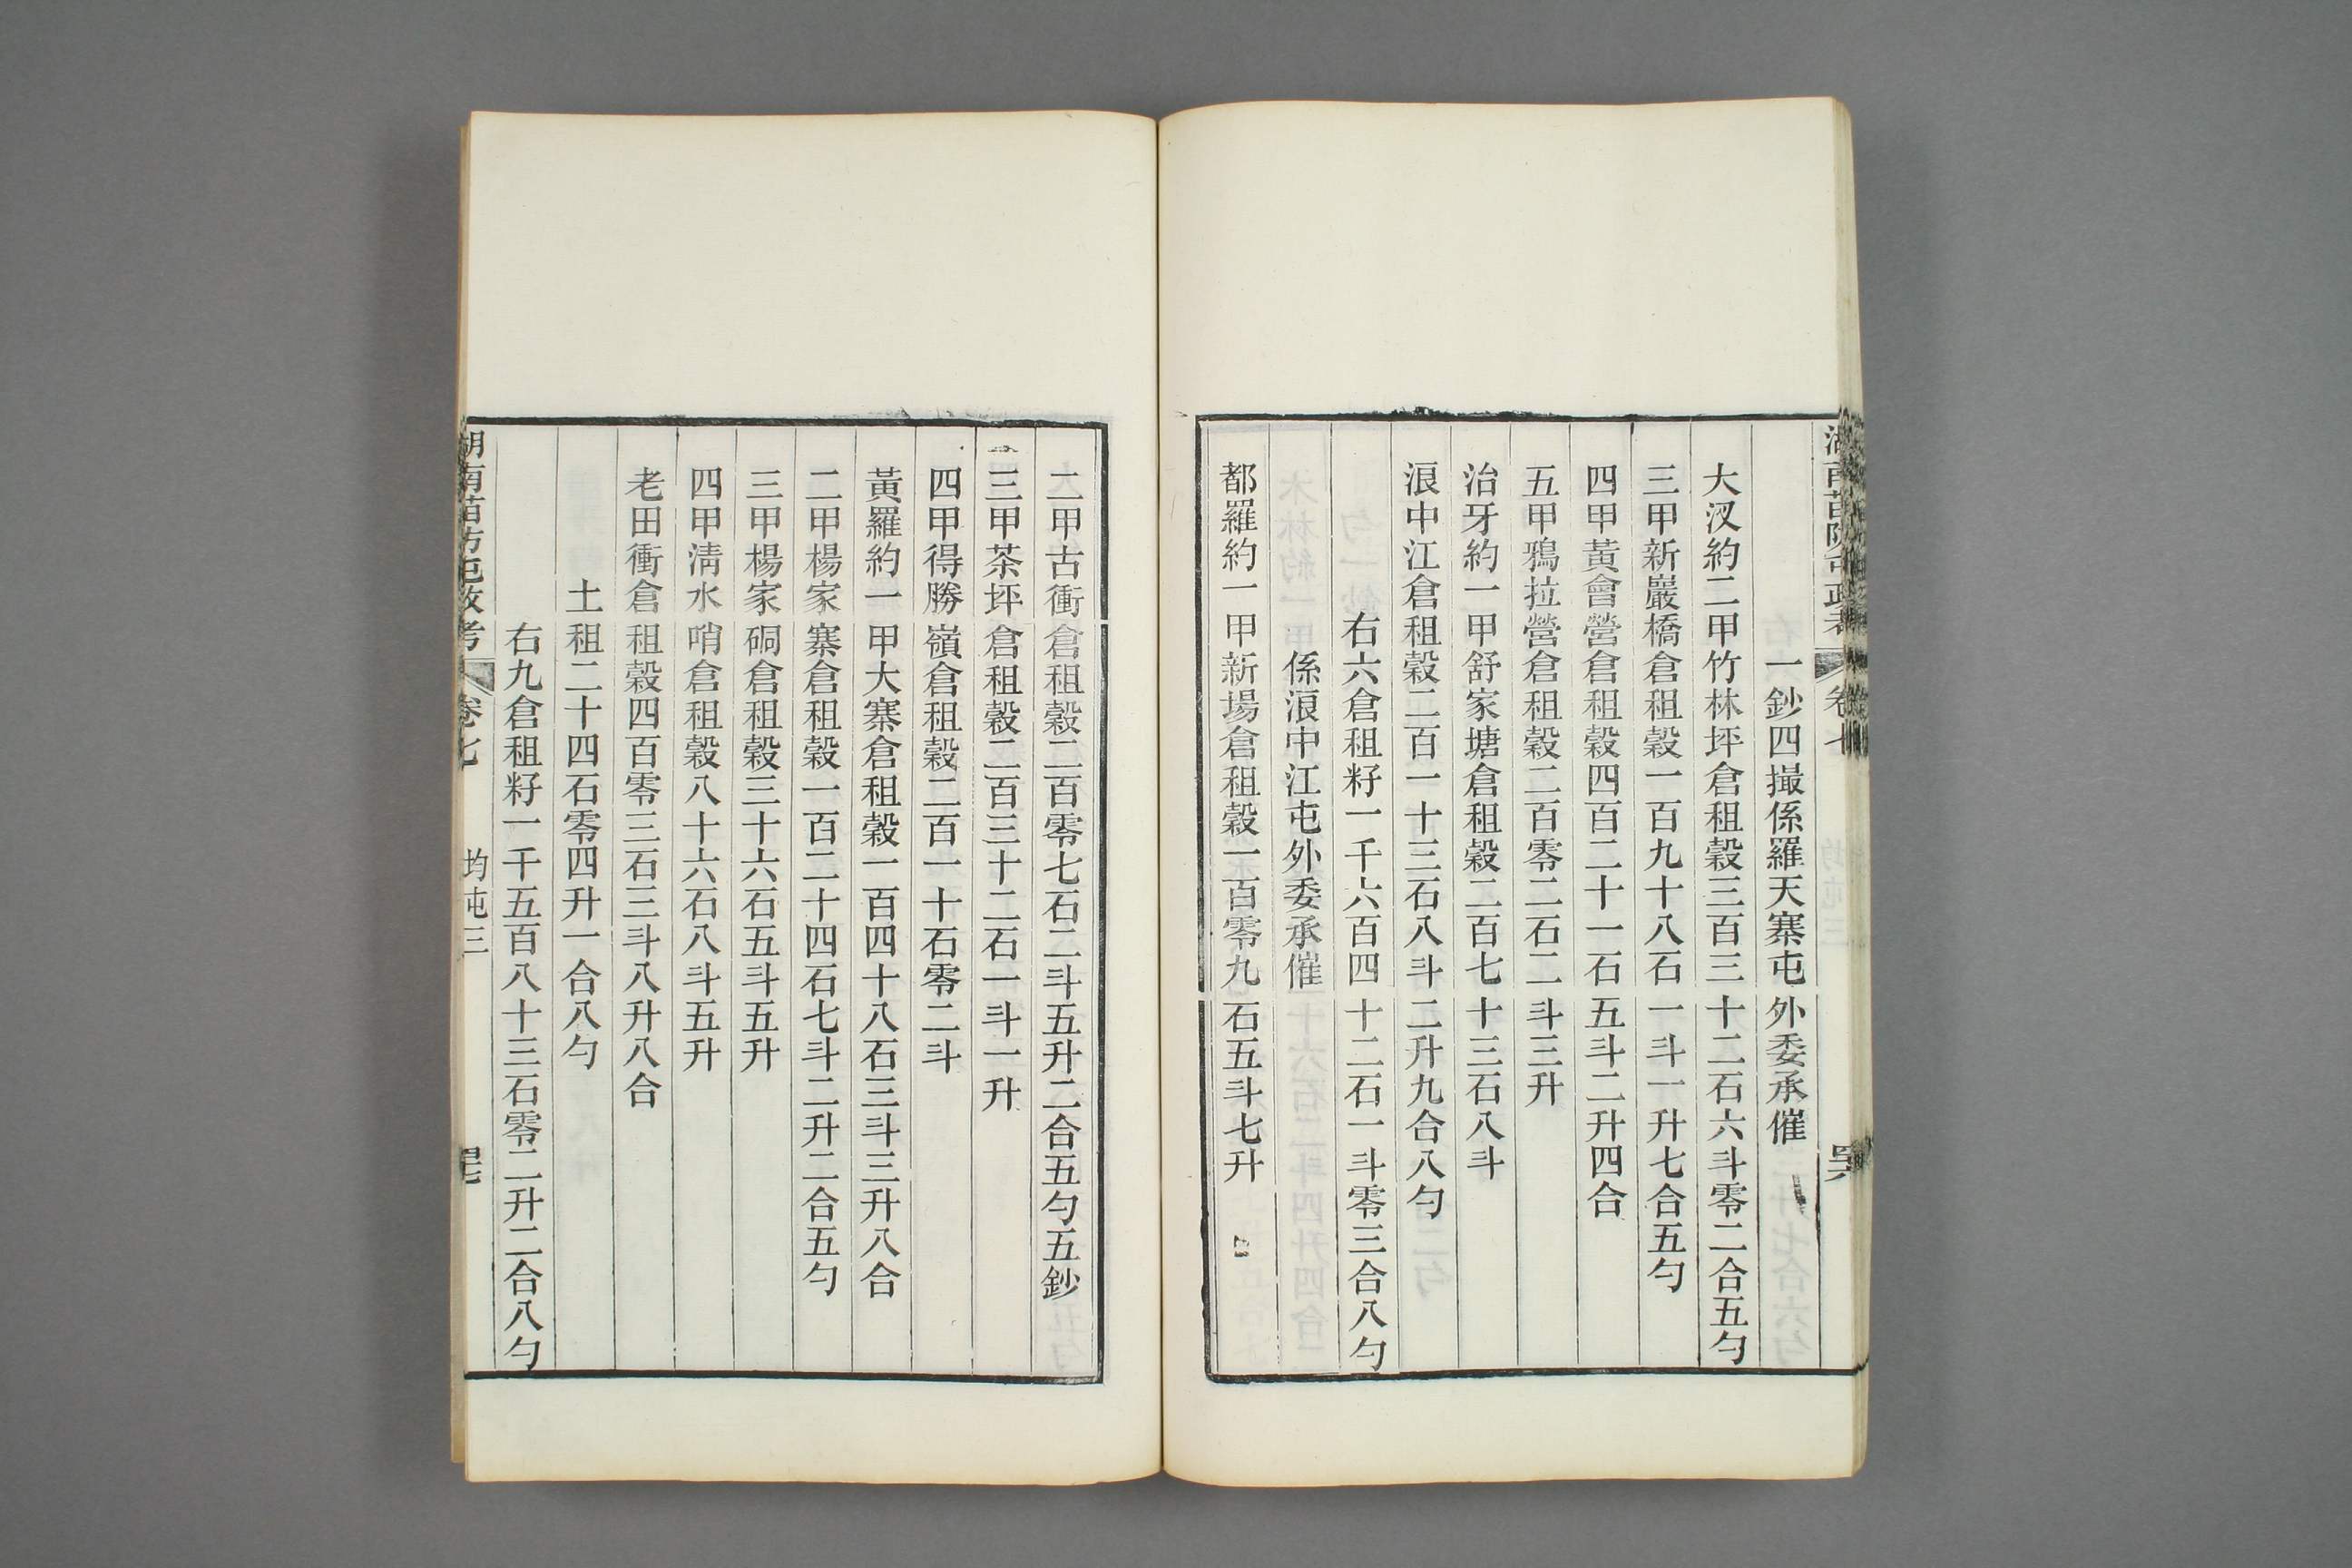 湖南苗防屯政考
卷七
一鈔四撮係羅天寨屯外委承催
大汊約二甲竹林坪倉租穀三百三十二石六斗零二合五勺
三甲新巖橋倉租穀一百九十八石一斗一升七合五勺
四甲黃會營倉租穀四百二十一石五斗二升四合
五甲鴉拉營倉租穀二百零二石二斗三升
治牙約一甲舒家塘倉租穀二百七十三石八斗
浪中江倉租穀二百一十三石八斗二升九合八勺
右六倉租籽一千六百四十二石一斗零三合八勺
係浪中江屯外委承催
都羅約一甲新場倉租穀一百零九石五斗七升
二甲古衝倉租穀二百零七石二斗五升二合五勺五鈔
三甲茶坪倉租穀二百三十二石一斗一升
四甲得勝嶺倉租穀二百一十石零二斗
黃羅約一甲大寨倉租穀一百四十八石三斗三升八合
二甲楊家寨倉租穀一百二十四石七斗二升二合五勺
三甲楊家硐倉租穀三十六石五斗五升
四甲淸水哨倉租穀八十六石八斗五升
老田衝倉租穀四百零三石三斗八升八合
土租二十四石零四升一合八勺
右九倉租籽一千五百八十三石零二升二合八勺
湖南苗防屯政考
卷七
均屯三